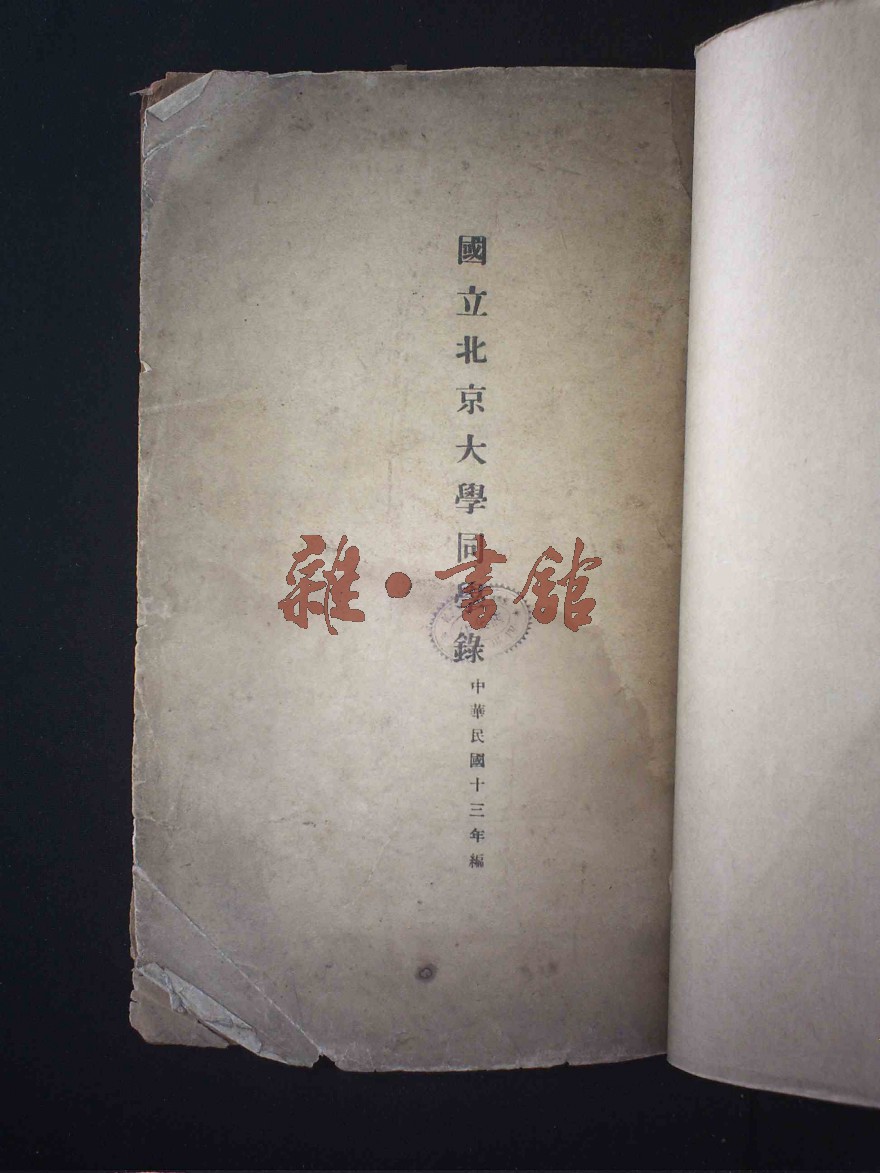 國立北京大學同學錄
中華民國十三年編
雜·書館